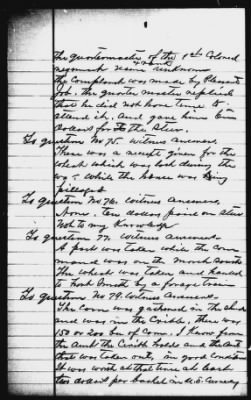 The quartermaster of the 1st Colored
regiment name unknown
The Complaint was made by Pleasant
Job, the quarter master replied
that he did not have time to
attend it, and gave him ten
dollars for the Steer.
To question No 75. witness answers,
There was a receipt given for the
wheat which was lost during the
war while the house was being
pillaged
To question No 76. witness answers,
None. ten dollars paid on steer
Not to my knowledge
To question 77. witness answers.
A part was taken while the com
mand was on the march
The wheat was taken and hauled
to Fort Smith by a forage train
To question No 79. witness answers.
The corn was gathered in the
and was in the Cribb, there was
150 or 200 bu of Corn. I know from
the amt the Cribb holds and the amt
that was taken out, in good condition
It was worth at that time at least
ten dollars per bushel in